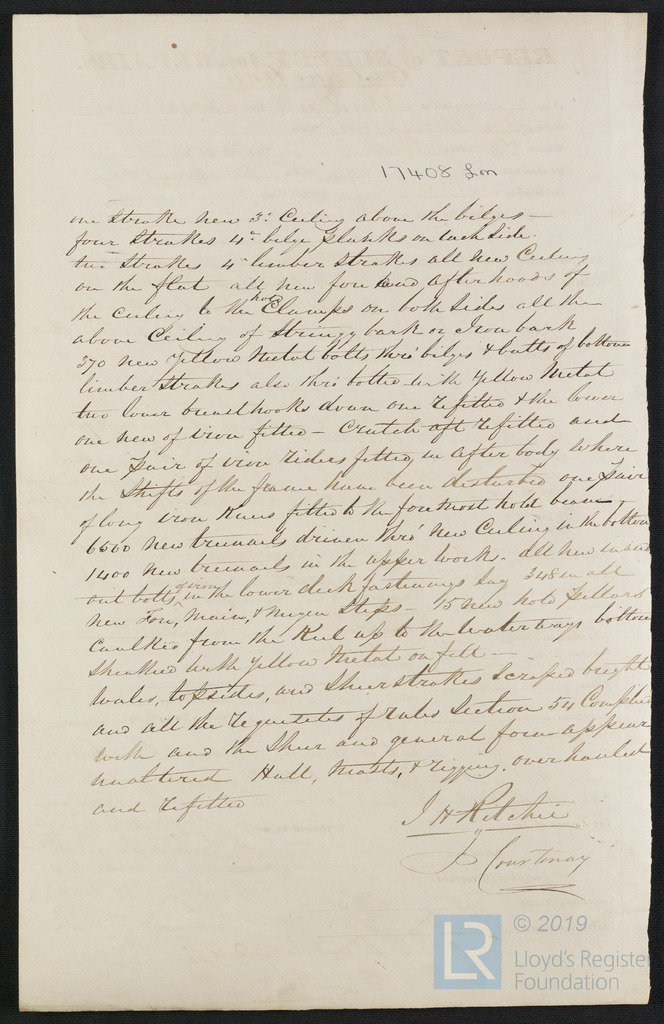 17408 Lon
one Strake new 3" Ceiling above the bilges —
four Strakes 4" bilge planks on each Side.
two Strakes 4" limber Strakes all new Ceiling
on the flat all new fore and afterhoods of
the Ceiling to the hold Clamps on both Sides all the
above Ceiling of Stringy bark or Iron bark
370 new Yellow Metal bolts thro' bilges & butts of bottom
limber Strakes also thro' bolted with Yellow Metal
two lower breasthooks down one refitted & the lower
one new of iron fitted — Crutch aft refitted and
one pair of iron riders fitted, in after body where
the Shifts of the frame have been disturbed one pair
of long iron Knees fitted to the foremost hold beam
6500 new treenails driven thro' new Ceiling in the bottom
1400 new treenails in the upper works — all new in and
out bolts of iron in the lower deck fastenings Say 348 in all
new Fore, Main, & Mizen Steps — 15 new hold Pillars
Caulked from the Keel up to the Waterways bottom
Sheathed with Yellow Metal on felt —
Wales, topsides, and Sheerstrakes Scraped bright
and all the requisites of rules Section 54 Complied
with and the Sheer and general form appear
unaltered Hull, Masts, & rigging, overhauled
and refitted
J H Ritchie
J Courtenay
LR
© 2019
Lloyd's Register
Foundation